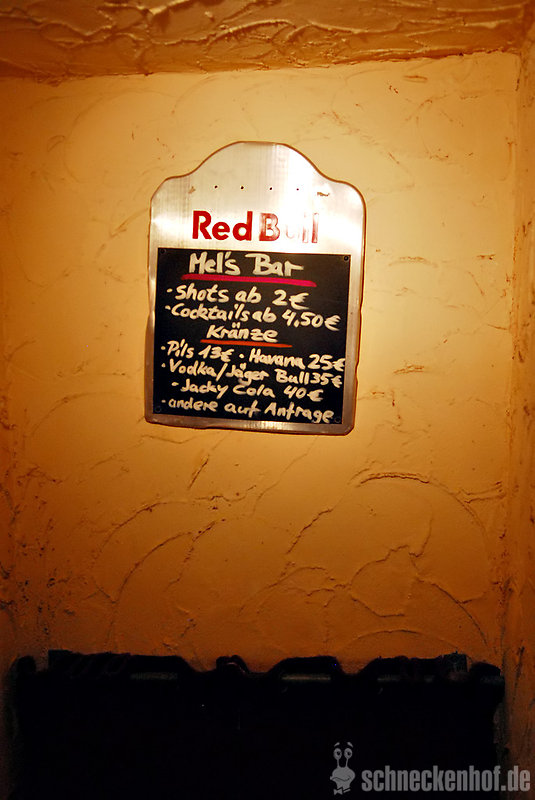 Red Bull
Mel's Bar
· Shots ab 2€
· Cocktails ab 4,50€
Kränze
· Pils 13€ · Havana 25€
· Vodka/Jäger Bull 35€
· Jacky Cola 40€
· andere auf Anfrage
schneckenhof.de